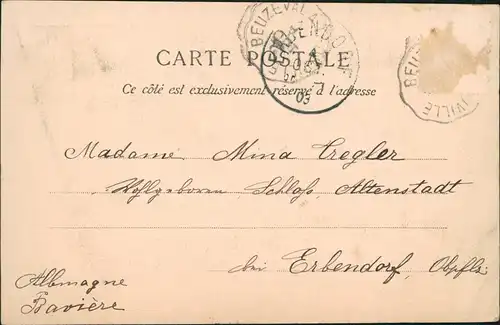 BEUZEVAL
ERBENDORF
03
BEUZ
VILLE
CARTE POSTALE
Ce côté est exclusivement réservé à l'adresse
Madame Mina Tregler
Wohlgeboren Schloß Altenstadt
bei Erbendorf, Obpflz
Allemagne
Bavière